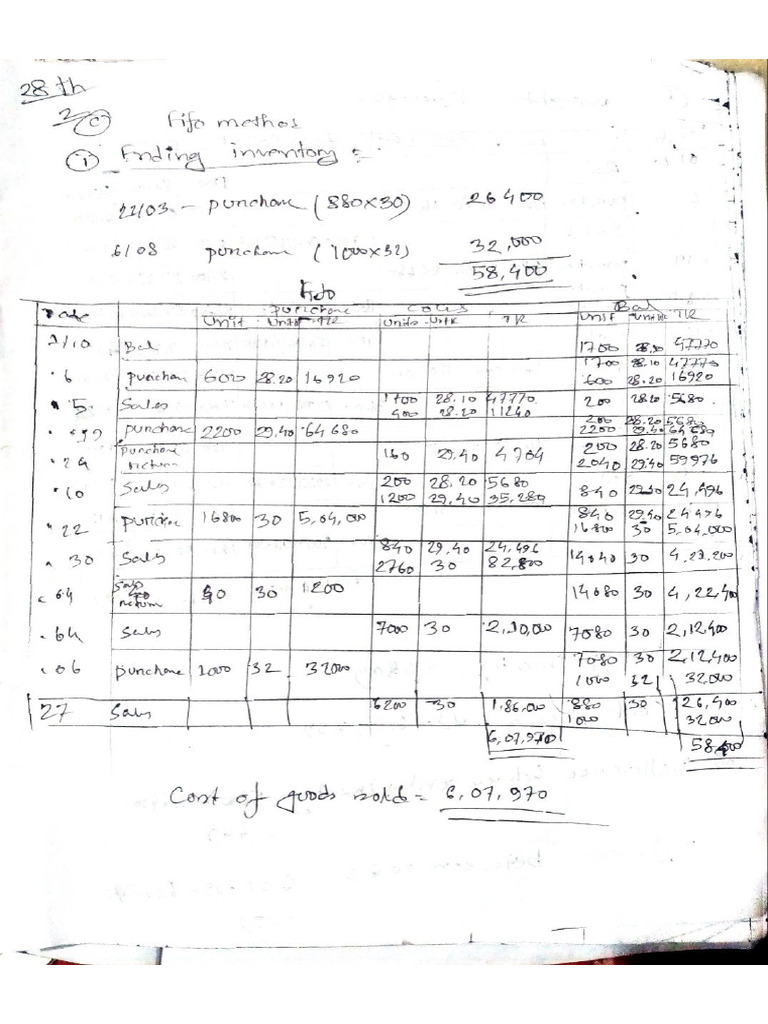 28th
2 (c) Fifo methos
(i) Ending inventory :-
22/03 - purchase (880×30) 26400
6/08 purchase (1000×32) 32,000
58,400
Fifo
Date Purchase COGS Bal
Unit Unit TK Units Unit TK Unit Unit TK
1/10 Bal 1700 28.10 47770
" 6 purchase 600 28.20 16920 1700 28.10 47770
600 28.20 16920
" 5 Sales 1700 28.10 47770 200 28.20 5680
400 28.20 11240
purchase 2200 29.40 64680 200 28.20 5680
2200 29.40 64680
" 29 purchase return 160 29.40 4704 200 28.20 5680
2040 29.40 59976
" 10 Sales 200 28.20 5680 840 29.40 24,496
1200 29.40 35,280
" 22 purchase 16800 30 5,04,000 840 29.40 24496
16800 30 5,04,000
" 30 Sales 840 29.40 24,496 14040 30
2760 30 82,800
" 64 Sales return 40 30 1200 14080 30 4,22,400
" 64 Sales 7000 30 2,10,000 7080 30 2,12,400
" 06 purchase 1000 32 32000 7080 30 2,12,400
1000 32 32000
27 Sales 6200 30 1,86,000 880 30 26,400
1000 32000
6,07,970 58,400
Cost of goods solds = 6,07,970